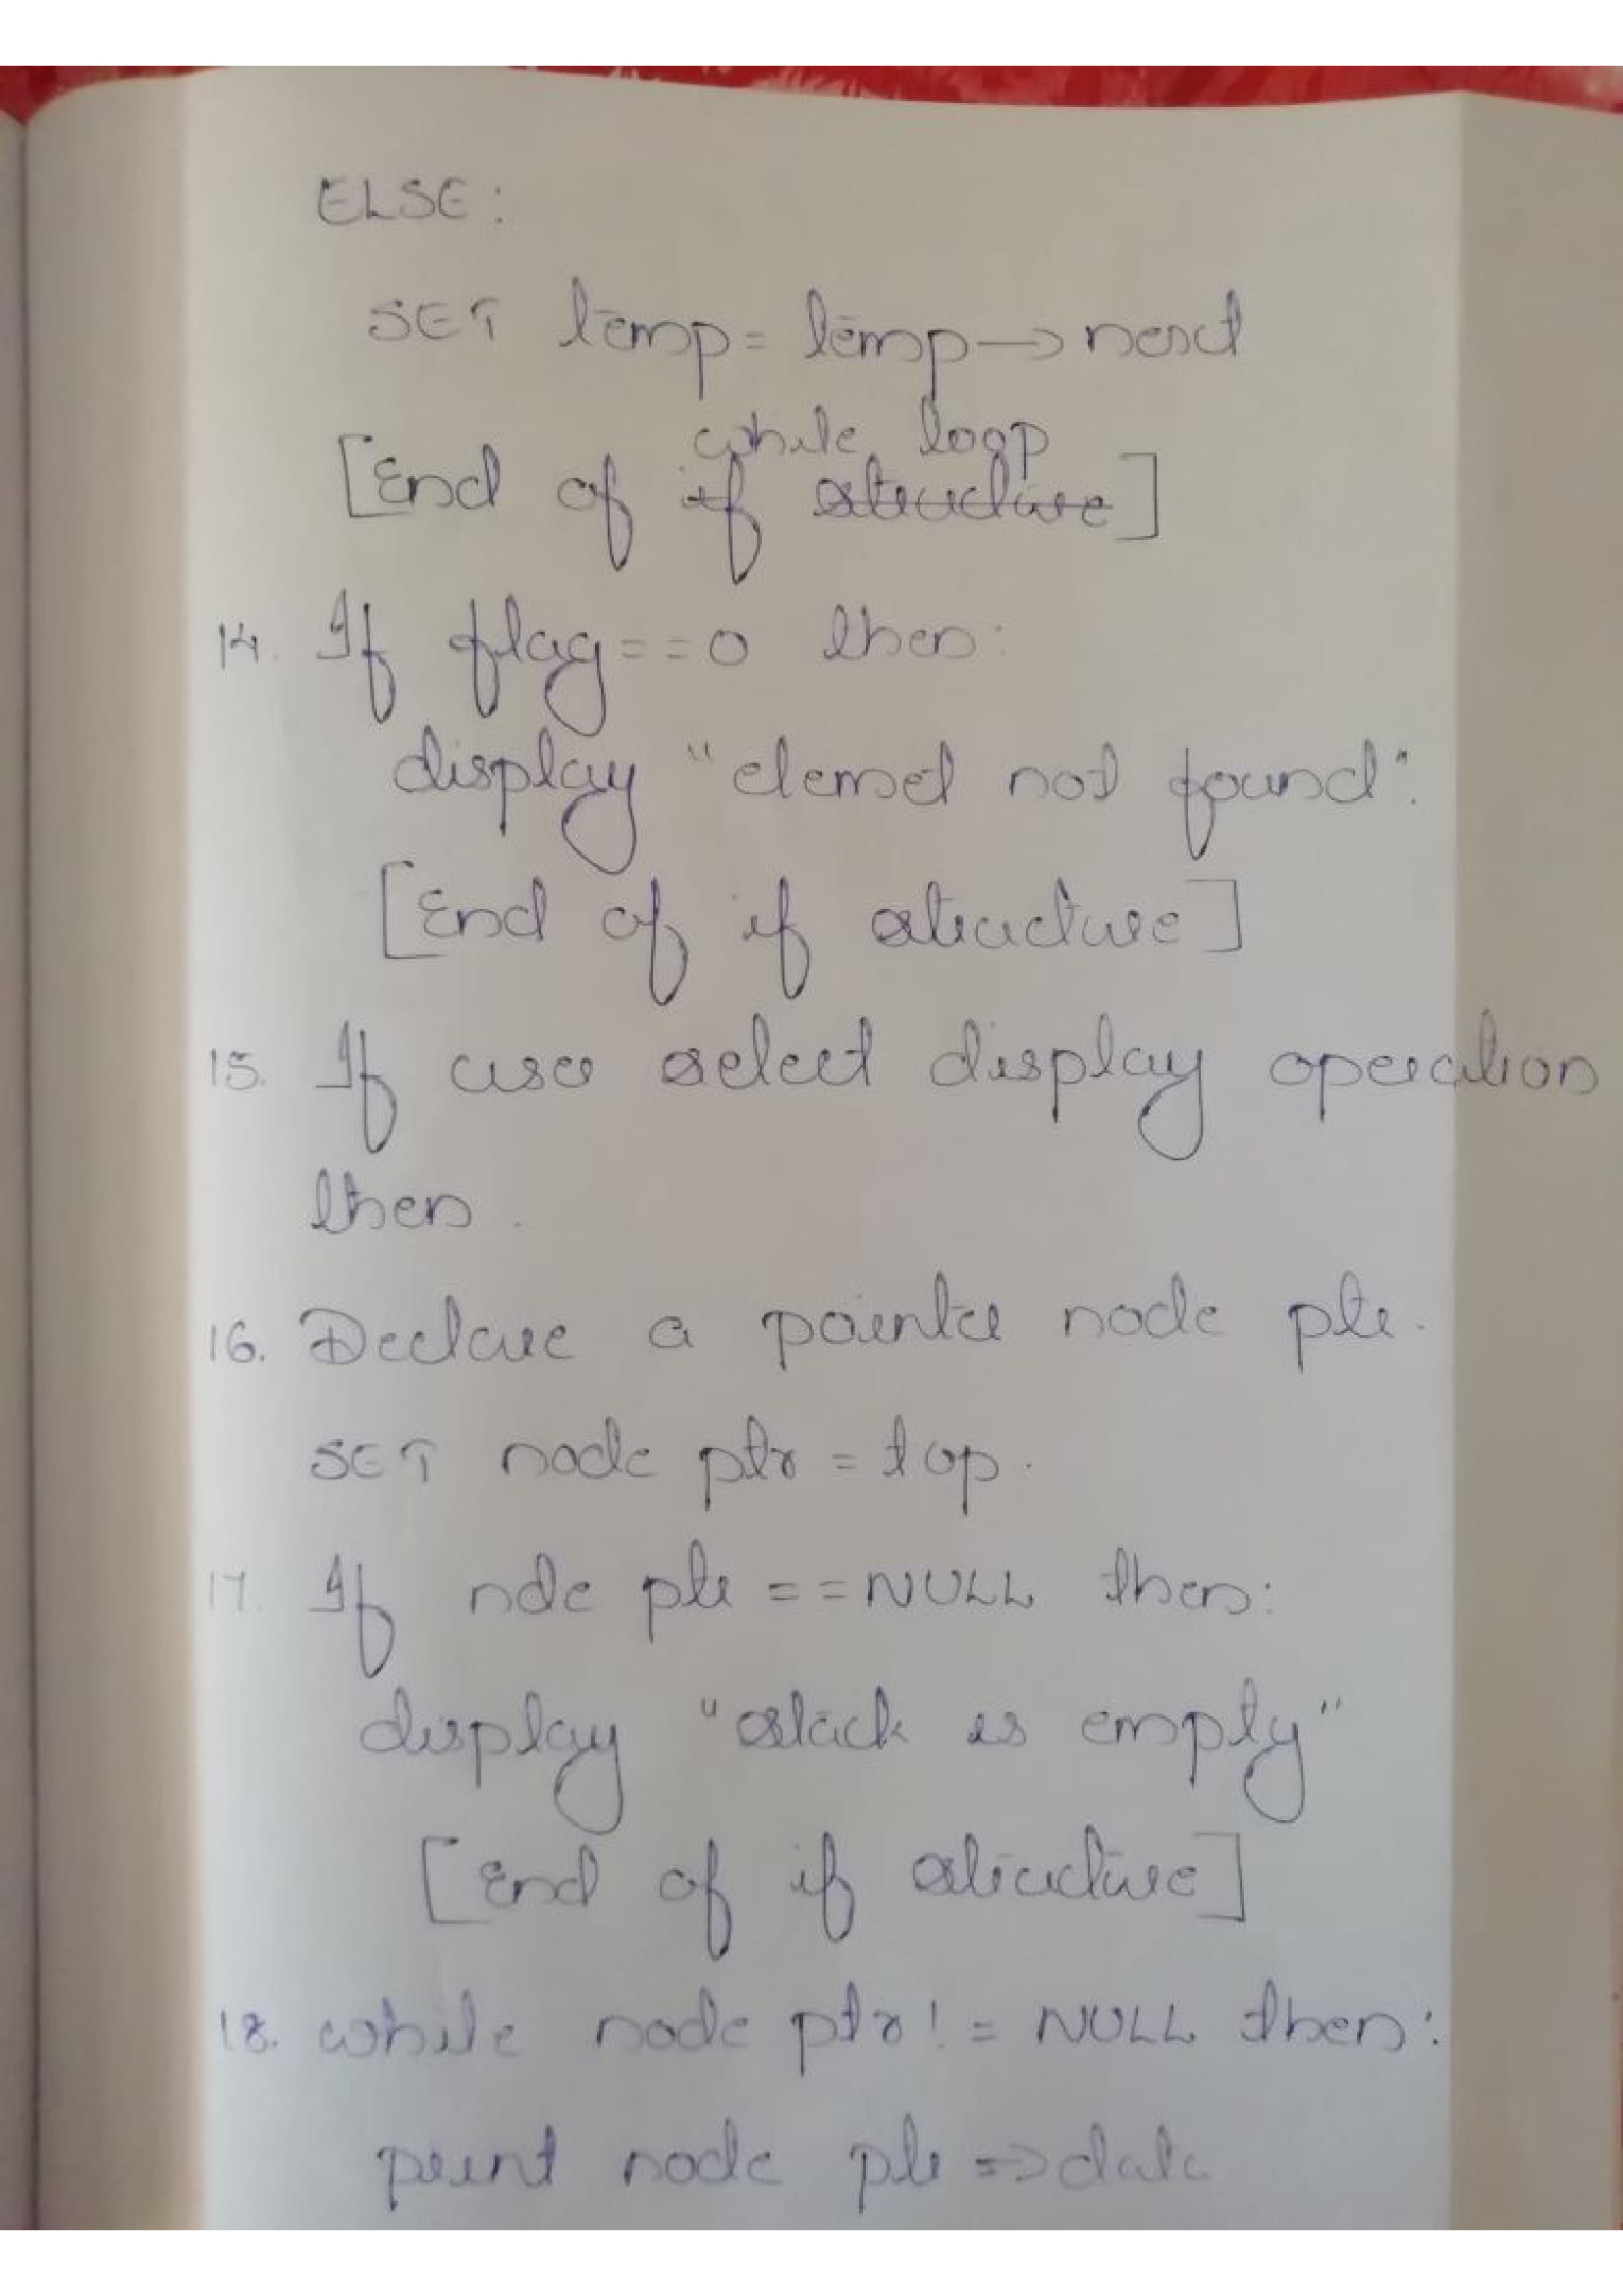 ELSE:
SET temp = temp → next
while loop
[End of if structure]
14. If flag == 0 then:
display "elemet not found".
[End of if structure]
15. If user select display operation
then.
16. Declare a pointer node ptr.
SET node ptr = top.
17. If nde ptr == NULL then:
display "stack is empty"
[End of if structure]
18. while node ptr != NULL then:
print node ptr => data